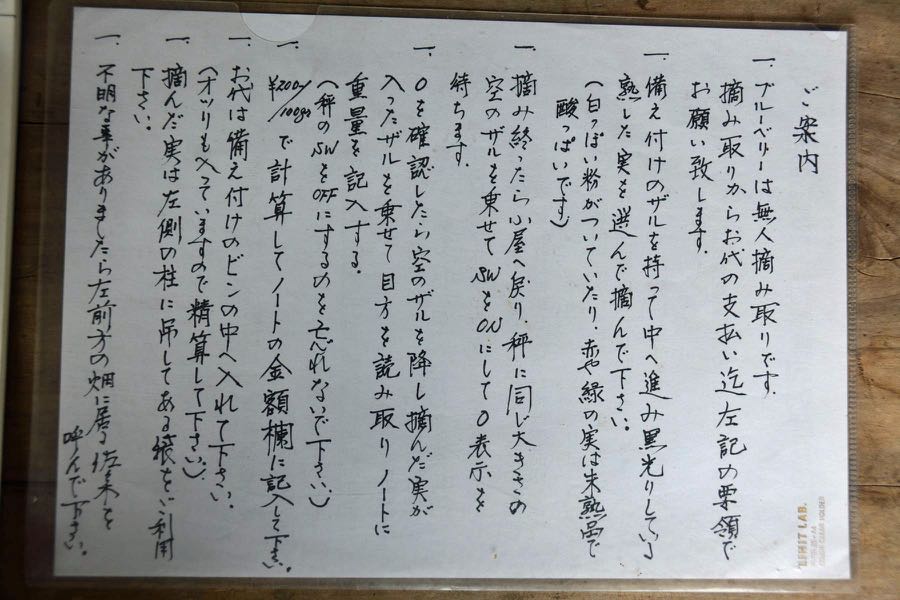 ご案内
一. ブルーベリーは無人摘み取りです.
摘み取りからお代の支払い迄左記の要領で
お願い致します.
一. 備え付けのザルを持って中へ進み黒光りしてい
熟した実を選んで摘んで下さい.
(白っぽい粉がついていたり.赤や緑の実は未熟品で
酸っぱいです)
一. 摘み終ったら小屋へ戻り.秤に同じ大きさの
空のザルを乗せてSWをONにして0表示を
待ちます.
一. 0を確認したら空のザルを降し摘んだ実が
入ったザルを乗せて目方を読み取りノートに
重量を記入する.
(秤のSWをOFFにするのを忘れないで下さい)
一. ¥200/100gr で計算してノートの金額欄に記入して下さい.
一. お代は備え付けのビンの中へ入れて下さい.
(オツリも入っていますので精算して下さい)
一. 摘んだ実は左側の柱に吊してある袋をご利用
下さい.
一. 不明な事がありましたら左前方の畑に居る佐来を
呼んで下さい.
BEHIT LAB.